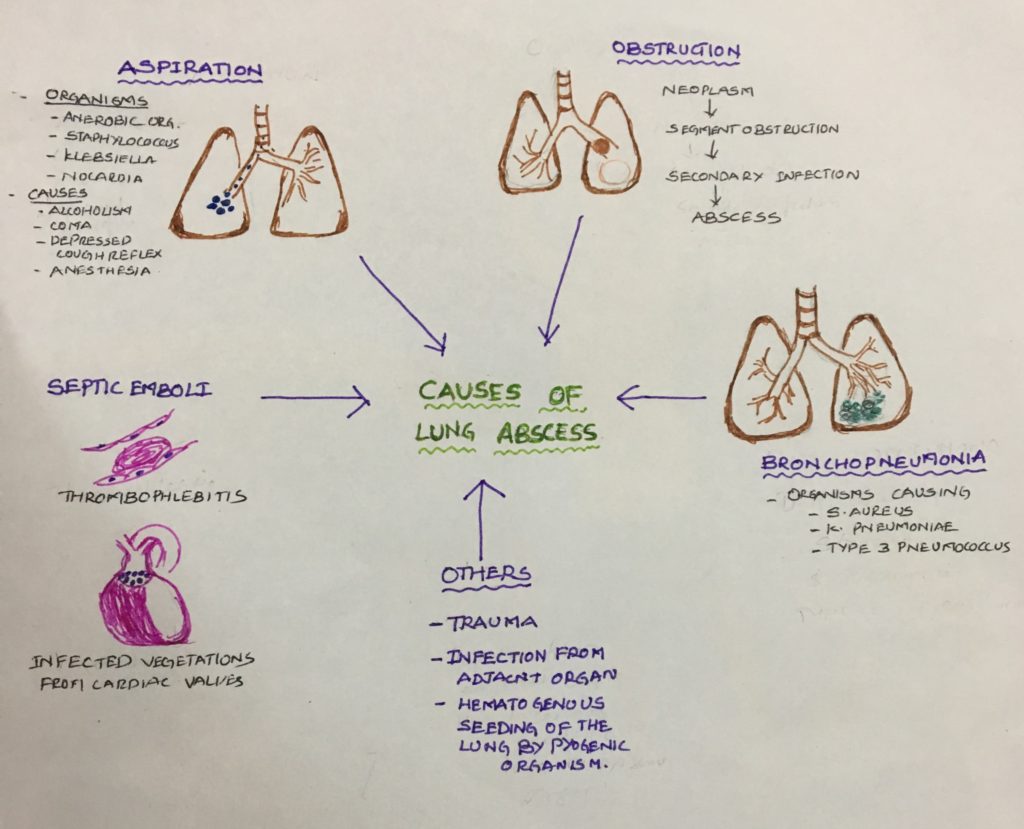 ASPIRATION
- ORGANISMS
- ANEROBIC ORG.
- STAPHYLOCOCCUS
- KLEBSIELLA
- NOCARDIA
- CAUSES
- ALCOHOLISM
- COMA
- DEPRESSED
COUGH REFLEX
- ANESTHESIA
OBSTRUCTION
NEOPLASM
↓
SEGMENT OBSTRUCTION
↓
SECONDARY INFECTION
↓
ABSCESS
SEPTIC EMBOLI
THROMBOPHLEBITIS
INFECTED VEGETATIONS
FROM CARDIAC VALVES
CAUSES OF
LUNG ABSCESS
BRONCHOPNEUMONIA
- ORGANISMS CAUSING
- S. AUREUS
- K. PNEUMONIAE
- TYPE 3 PNEUMOCOCCUS
OTHERS
- TRAUMA
- INFECTION FROM
ADJACNT ORGAN
- HEMATOGENOUS
SEEDING OF THE
LUNG BY PYOGENIC
ORGANISM.